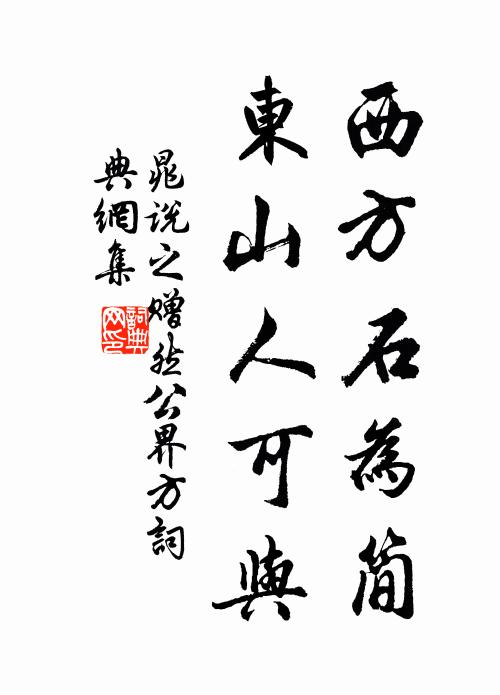 西方石為簡
東山人可與
晁说之赠然公界方詞
典網集
詞典网印